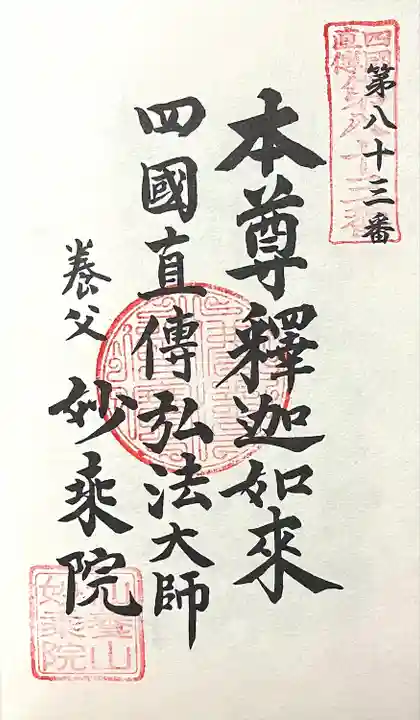 第八十三番
本尊釋迦如來
四國直傳弘法大師
養父 妙乗院
四國直傳
第八十三番
山
妙乗院